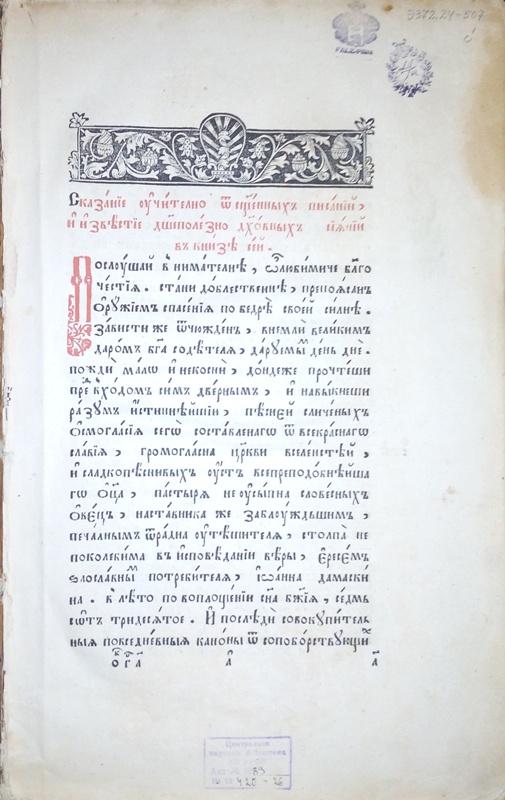 Э372.24-507
Сказа́нїе оу҆чи́телно ѿ сщ҃е́нныхъ писа́нїй,
и҆ и҆звѣ́стїе дш҃еполе́зно дх҃о́вныхъ сїѧ́нїй
въ кни́зѣ се́й.
Послоу́шай внима́телнѣ, ѽ любими́че бл҃го
че́стїѧ. ста́ни до́блественнѣ, препоѧ́санъ
ѻ҆рꙋ́жїемъ спасе́нїѧ по бедрѣ̀ свое́й си́лнѣ.
за́висти же ѿчюжде́нъ, внемлѝ вели́кимъ
даро́мъ бг҃а содѣ́телѧ, да́рꙋемы де́нь днѐ.
пождѝ ма́лѡ и҆ некоснѝ, до́ндеже прочте́ши
пред вхо́домъ си́мъ две́рнымъ, и҆ навы́кнеши
ра́зꙋмъ и҆́стиннѣйшїи, пѣ́сней сличе́ныхъ
ѻ҆смогла́сїѧ сегѡ̀ соста́вленагѡ ѿ всекра́снагѡ
сла́вїѧ, громогла́сна цр҃кви вселе́нстѣй,
и҆ сладкопѣ́снивыхъ оу҆́стъ всепреподо́бнѣйша
гѡ ѻ҆ц҃а̀, па́стырѧ не оу҆сы́пна слове́сныхъ
ѻ҆ве́цъ, наста́вника же заблоу́ждьшимъ,
печа́лнымъ ѿра́дна оу҆тѣ́шителѧ, столпа̀ не
поколеби́ма въ и҆сповѣ́данїи вѣ́ры, є҆ресе́мъ
ѕлосла́вны потреби́телѧ, і҆ѡа́нна дамаски
на. в лѣ́то по воплоще́нїи сн҃а бж҃їѧ, се́дмь
сѡ́тъ тридесѧ́тое. И҆ послѣдѝ совокꙋпи́тель
ныѧ повседне́вныѧ кано́ны ѿ сопобо́рствꙋющи
а҃
Центральна
420 - 26